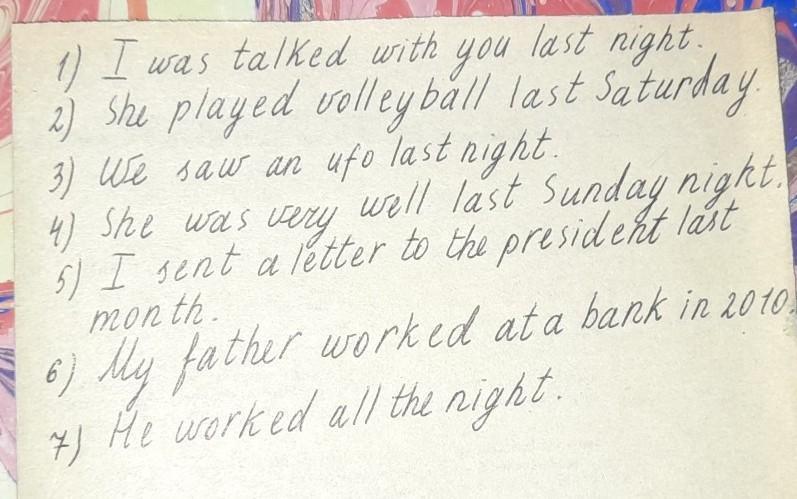 1) I was talked with you last night.
2) She played volleyball last Saturday.
3) We saw an ufo last night.
4) She was very well last Sunday night.
5) I sent a letter to the president last
month.
6) My father worked at a bank in 2010.
7) He worked all the night.